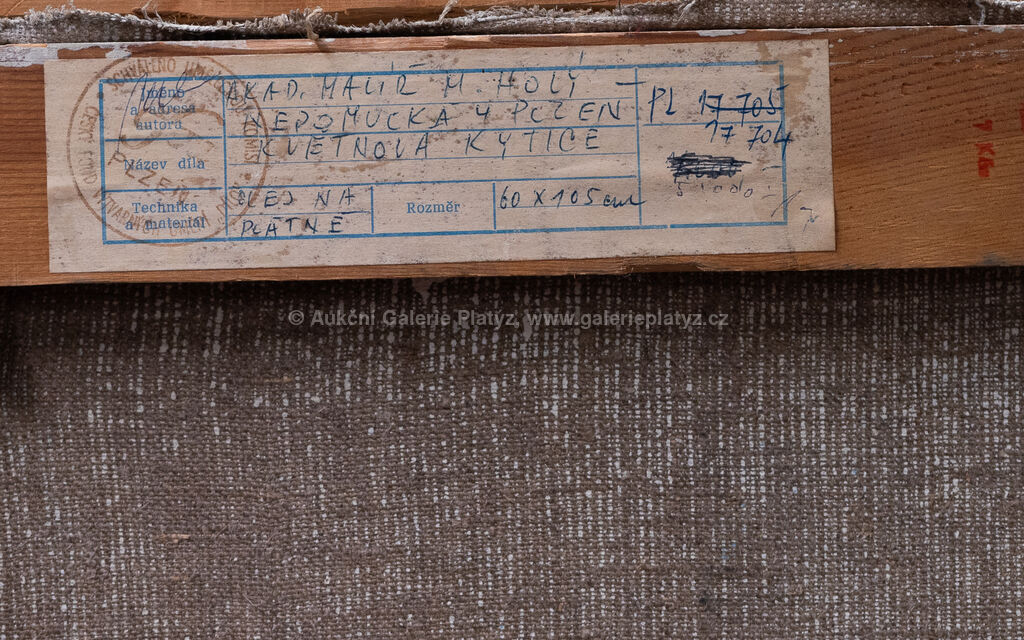 Jméno
a adresa
autora
AKAD. MALÍŘ M. HOLÝ –
NEPOMUCKÁ 4 PLZEŇ
Název díla
KVĚTNOVÁ KYTICE
Technika
a materiál
OLEJ NA
PLÁTNĚ
Rozměr
60 X 105 cm
PL 17 705
17 704
5.000.-
SCHVÁLENO UMĚLECKOU KOMISÍ
ČESKÝ FOND VÝTVARNÝCH UMĚNÍ
PLZEŇ
7 Kč
© Aukční Galerie Platýz, www.galerieplatyz.cz